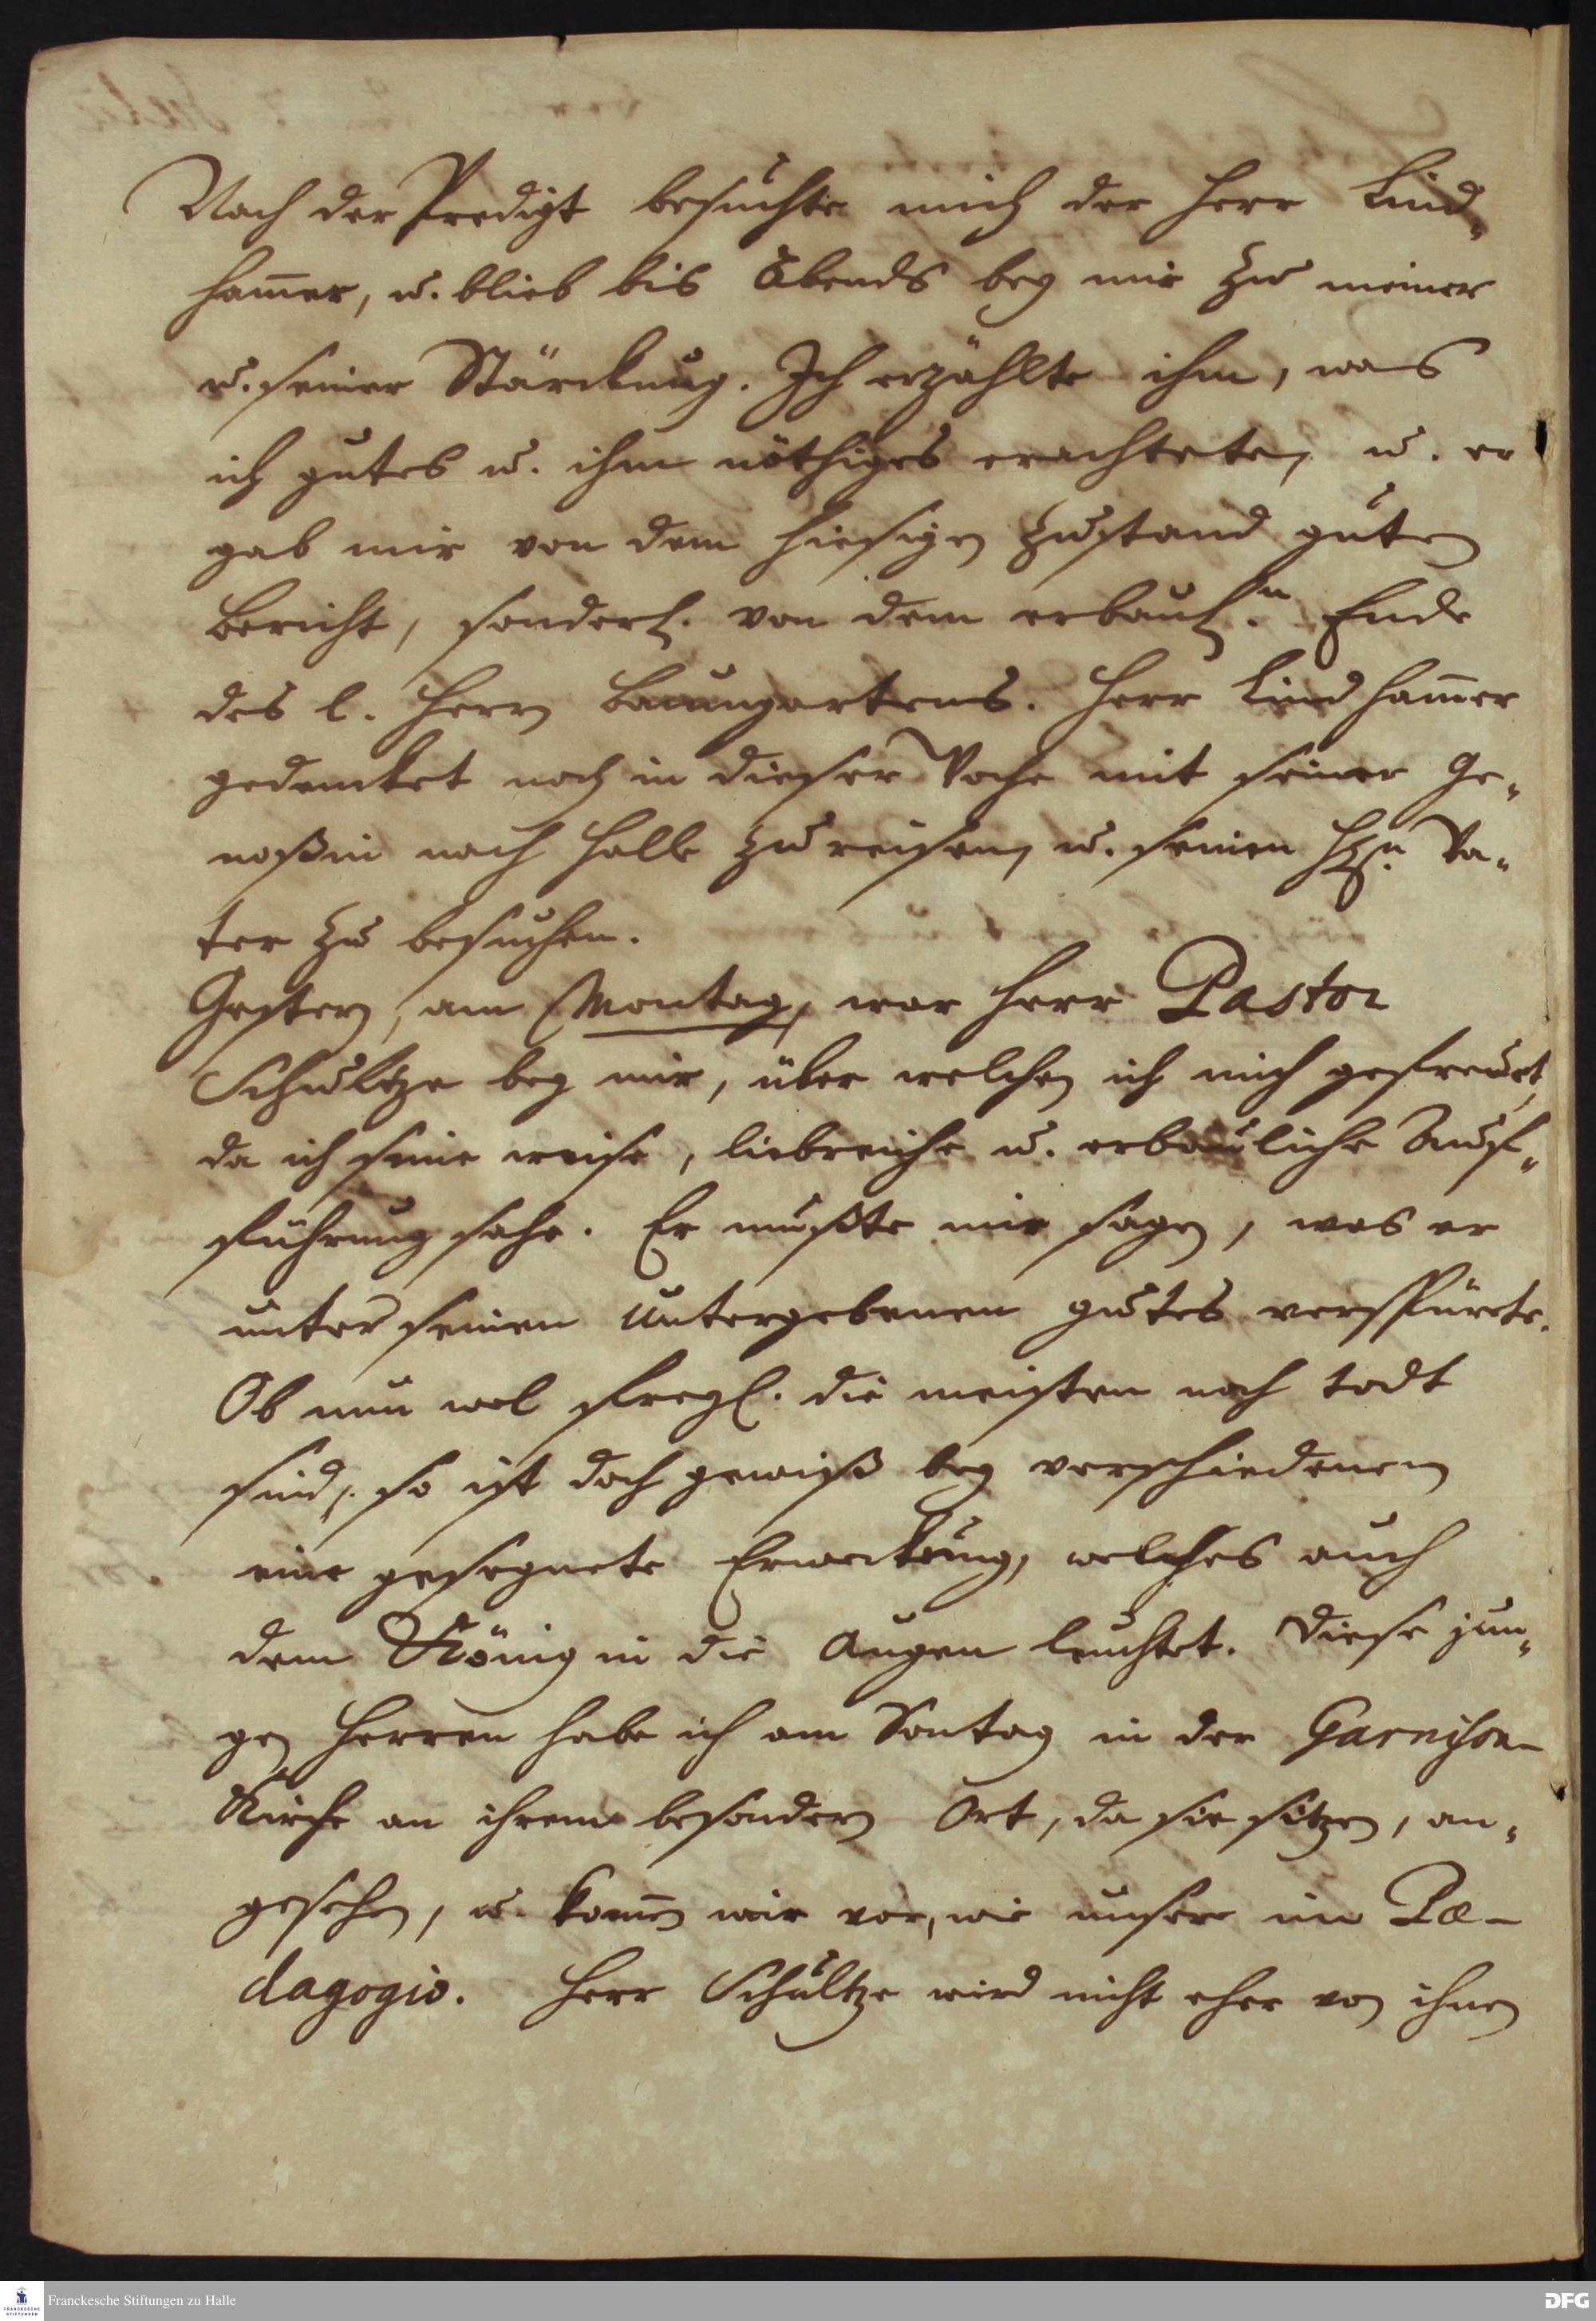 Nach der Predigt besuchte mich der Herr Lind-
ham̄er, u. blieb bis Abends bey mir zu meiner
u. seiner Stärckung. Ich erzählte ihm, was
ich gutes u. ihm nöthiges erachtete, u. er
gab mir von dem hiesigen Zustand guten
Bericht, sonderl. von dem erbaul.n Ende
des l. Herrn Baumgartens. Herr Lindham̄er
gedencket noch in dieser Woche mit seiner Ge-
noßin nach Halle zu reisen, u. seinen Hrn. Va-
ter zu besuchen.
Gestern, am Montag, war Herr Pastor
Schultze bey mir, über welchen ich mich gefreuet,
da ich seine weise, liebreiche u. erbauliche Auf-
führung sahe. Er mußte mir sagen, was er
unter seinen Untergebenen gutes verspürete.
Ob nun wol freyl. die meisten noch todt
sind, so ist doch gewiß bey verschiedenen
eine gesegnete Erweckung, welches auch
dem König in die Augen leuchtet. Diese jun-
gen Herren habe ich am Sontag in der Garnison-
Kirche an ihrem besondern Ort, da sie sitzen, an-
gesehen, u. kom̄en mir vor, wie unsere im Pæ-
dagogio. Herr Schultze wird nicht eher von ihnen
Franckesche Stiftungen zu Halle
FRANCKESCHE
STIFTUNGEN
DFG